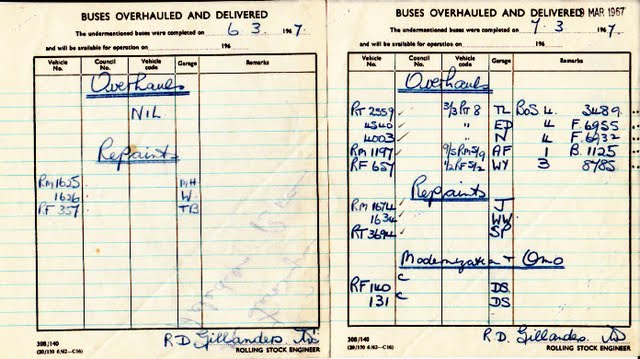 BUSES OVERHAULED AND DELIVERED
The undermentioned buses were completed on 6. 3. 1967
and will be available for operation on 196
Vehicle No. Council No. Vehicle code Garage Remarks
Overhauls
NIL
Repaints
RM 1625 MH
1626 W
RF 357 TB
R.D. Gillandes
308/140
(20/150 6/62—C16)
ROLLING STOCK ENGINEER
BUSES OVERHAULED AND DELIVERED 9 MAR 1967
The undermentioned buses were completed on 7. 3. 1967.
and will be available for operation on 196
Vehicle No. Council No. Vehicle code Garage Remarks
Overhauls
RT 2559 3/3 RT 8 TL BOS 4. 3489.
4540 " ED 4 F. 6955
4003 " N 4 F. 6932
RM 1197 9/5 RM 5/9 AF 1 B. 1125
RF 657 1/2 RF 5/2 WY 3 8785
Repaints
RM 1674 J
1634 WW
RT 3694 SP
Modernization + Omo
RF 140 C DS
131 C DS
R.D. Gillandes
308/140
(20/150 6/62—C16)
ROLLING STOCK ENGINEER